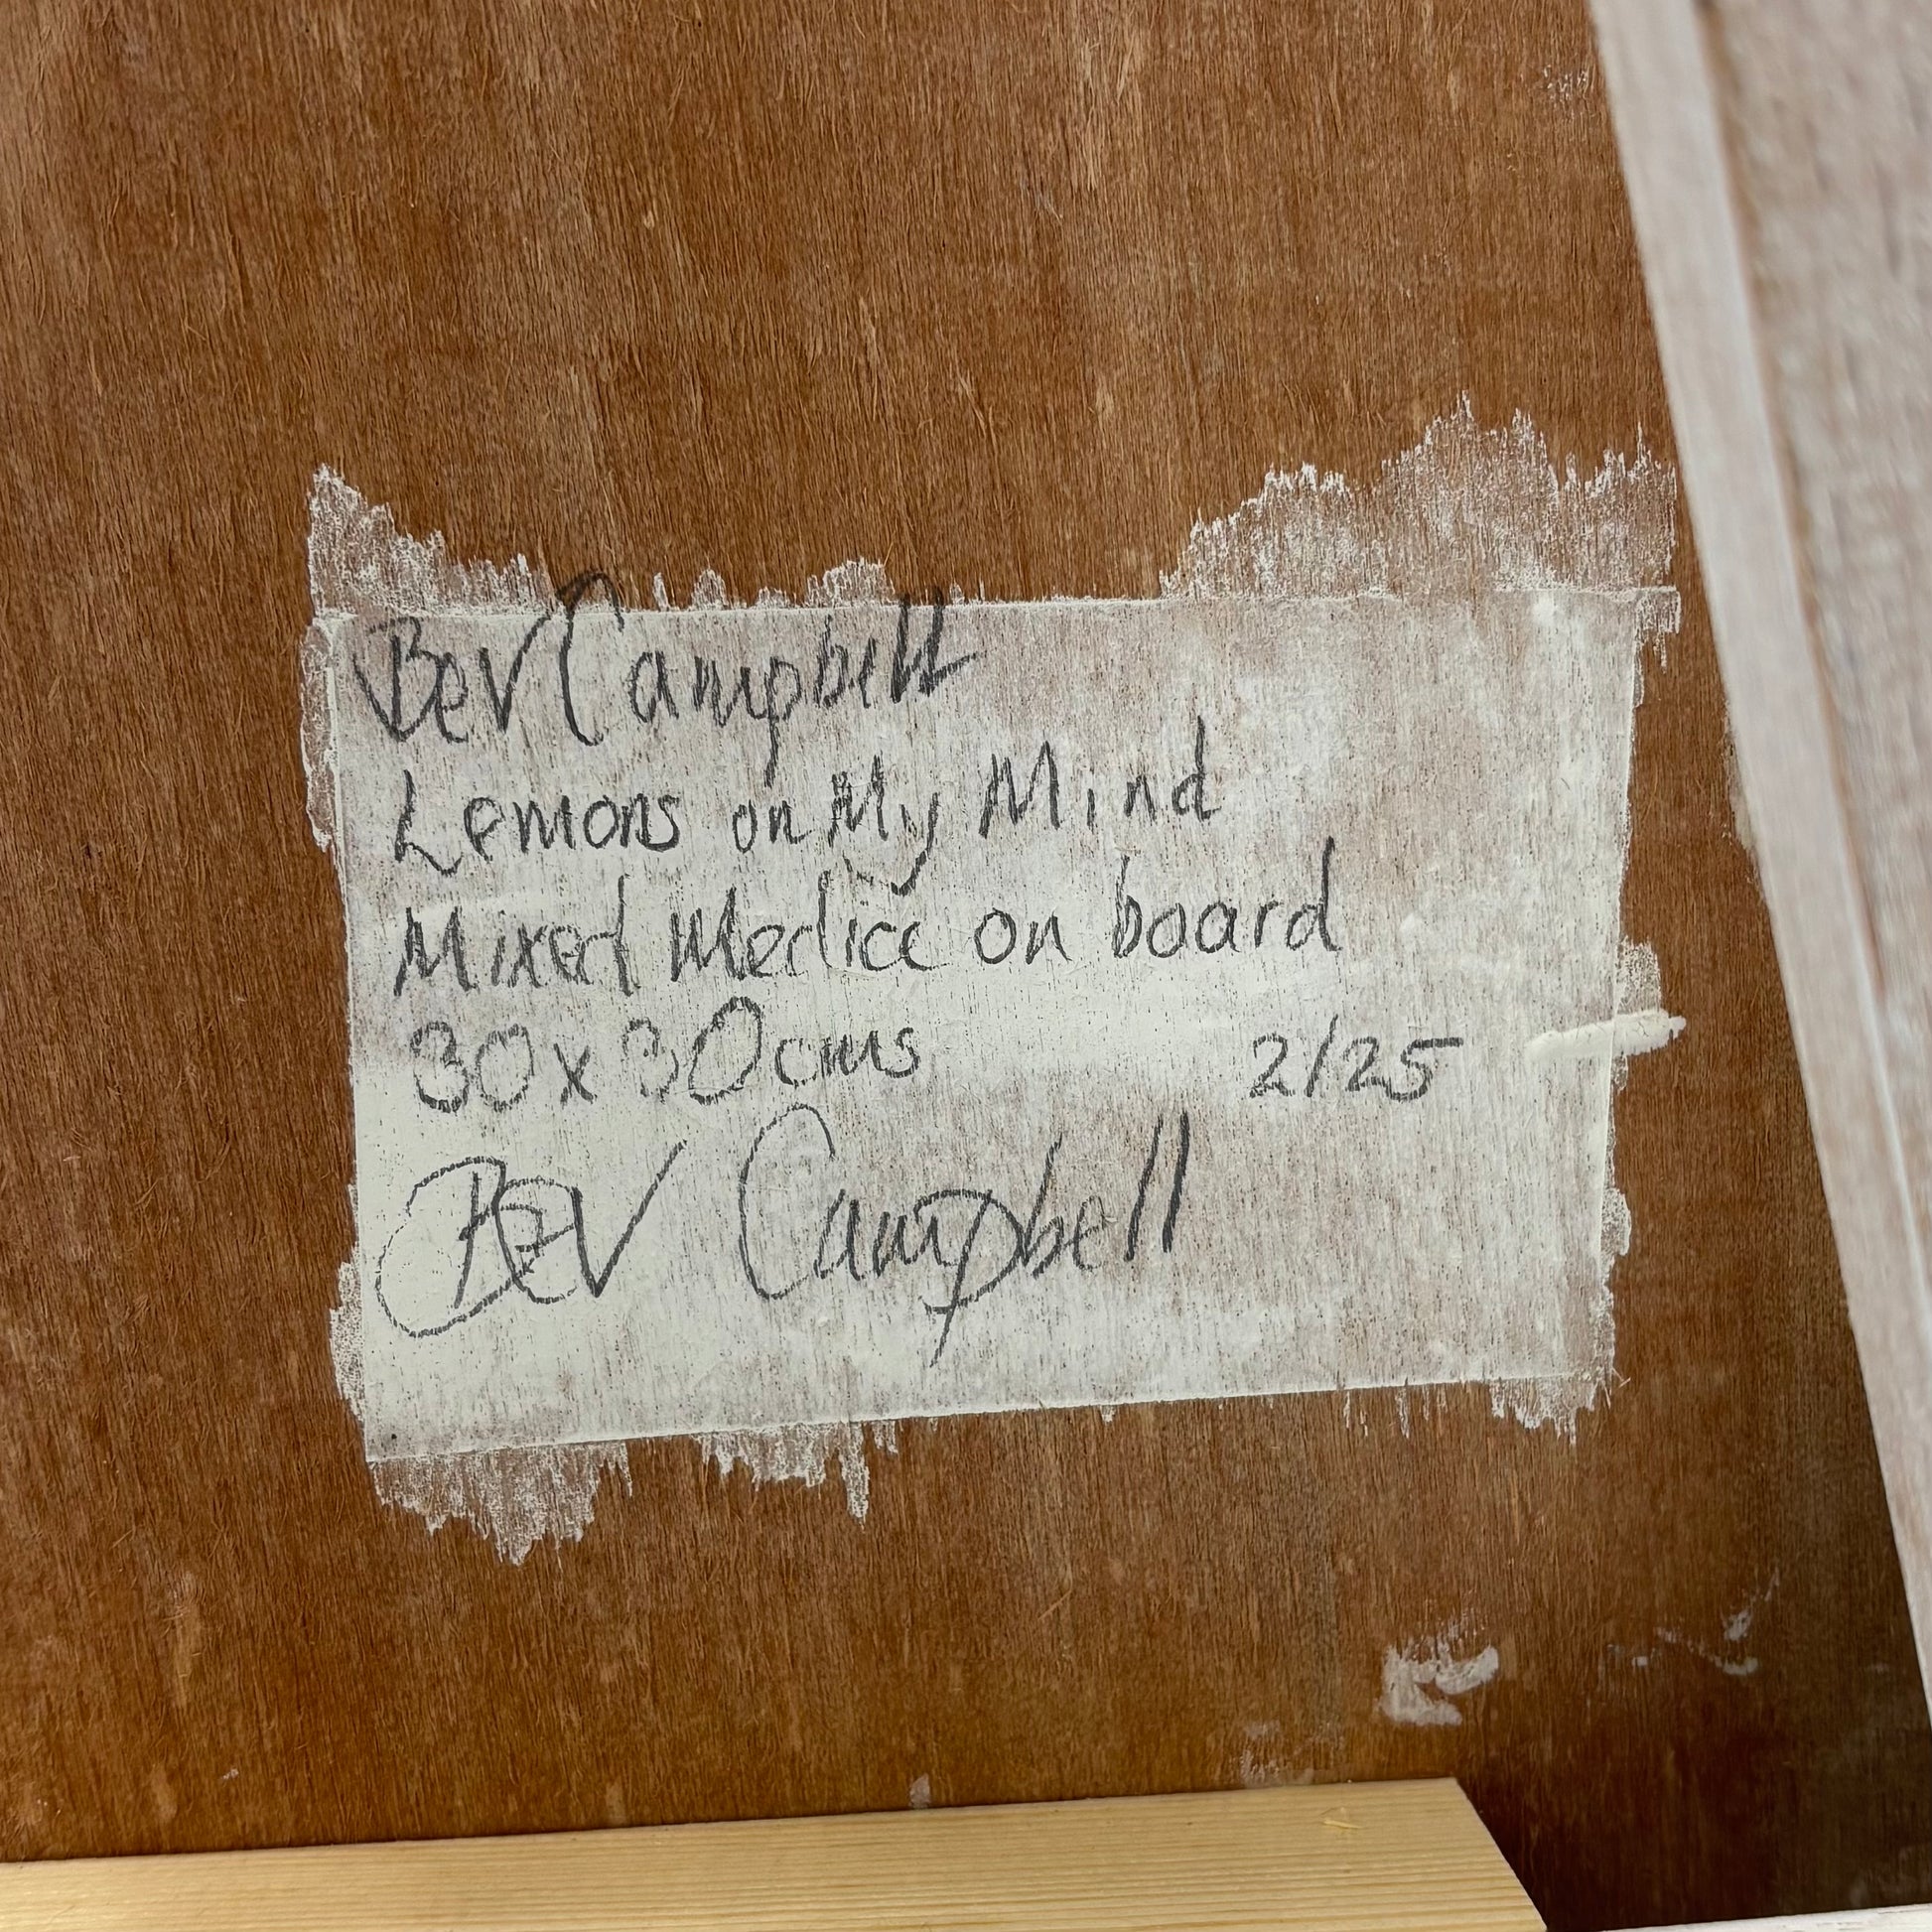 Bev Campbell
Lemons on My Mind
Mixed Media on board
30 x 30 cms 2/25
Bev Campbell